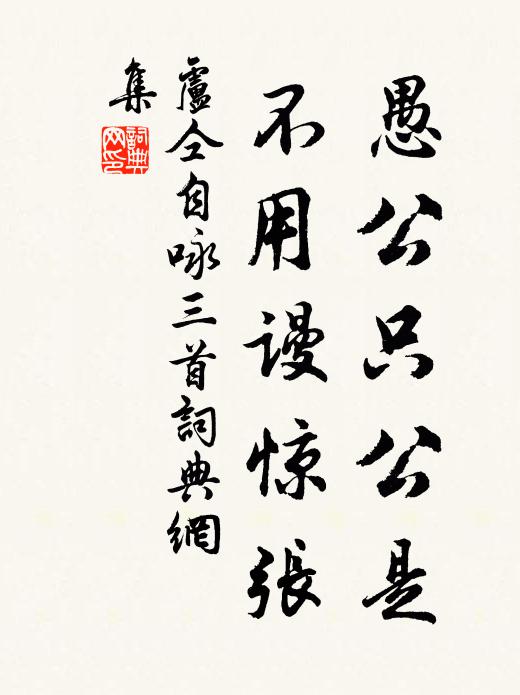 愚公只公是
不用謾惊張
盧仝自咏三首詞典網
集
詞典
网印